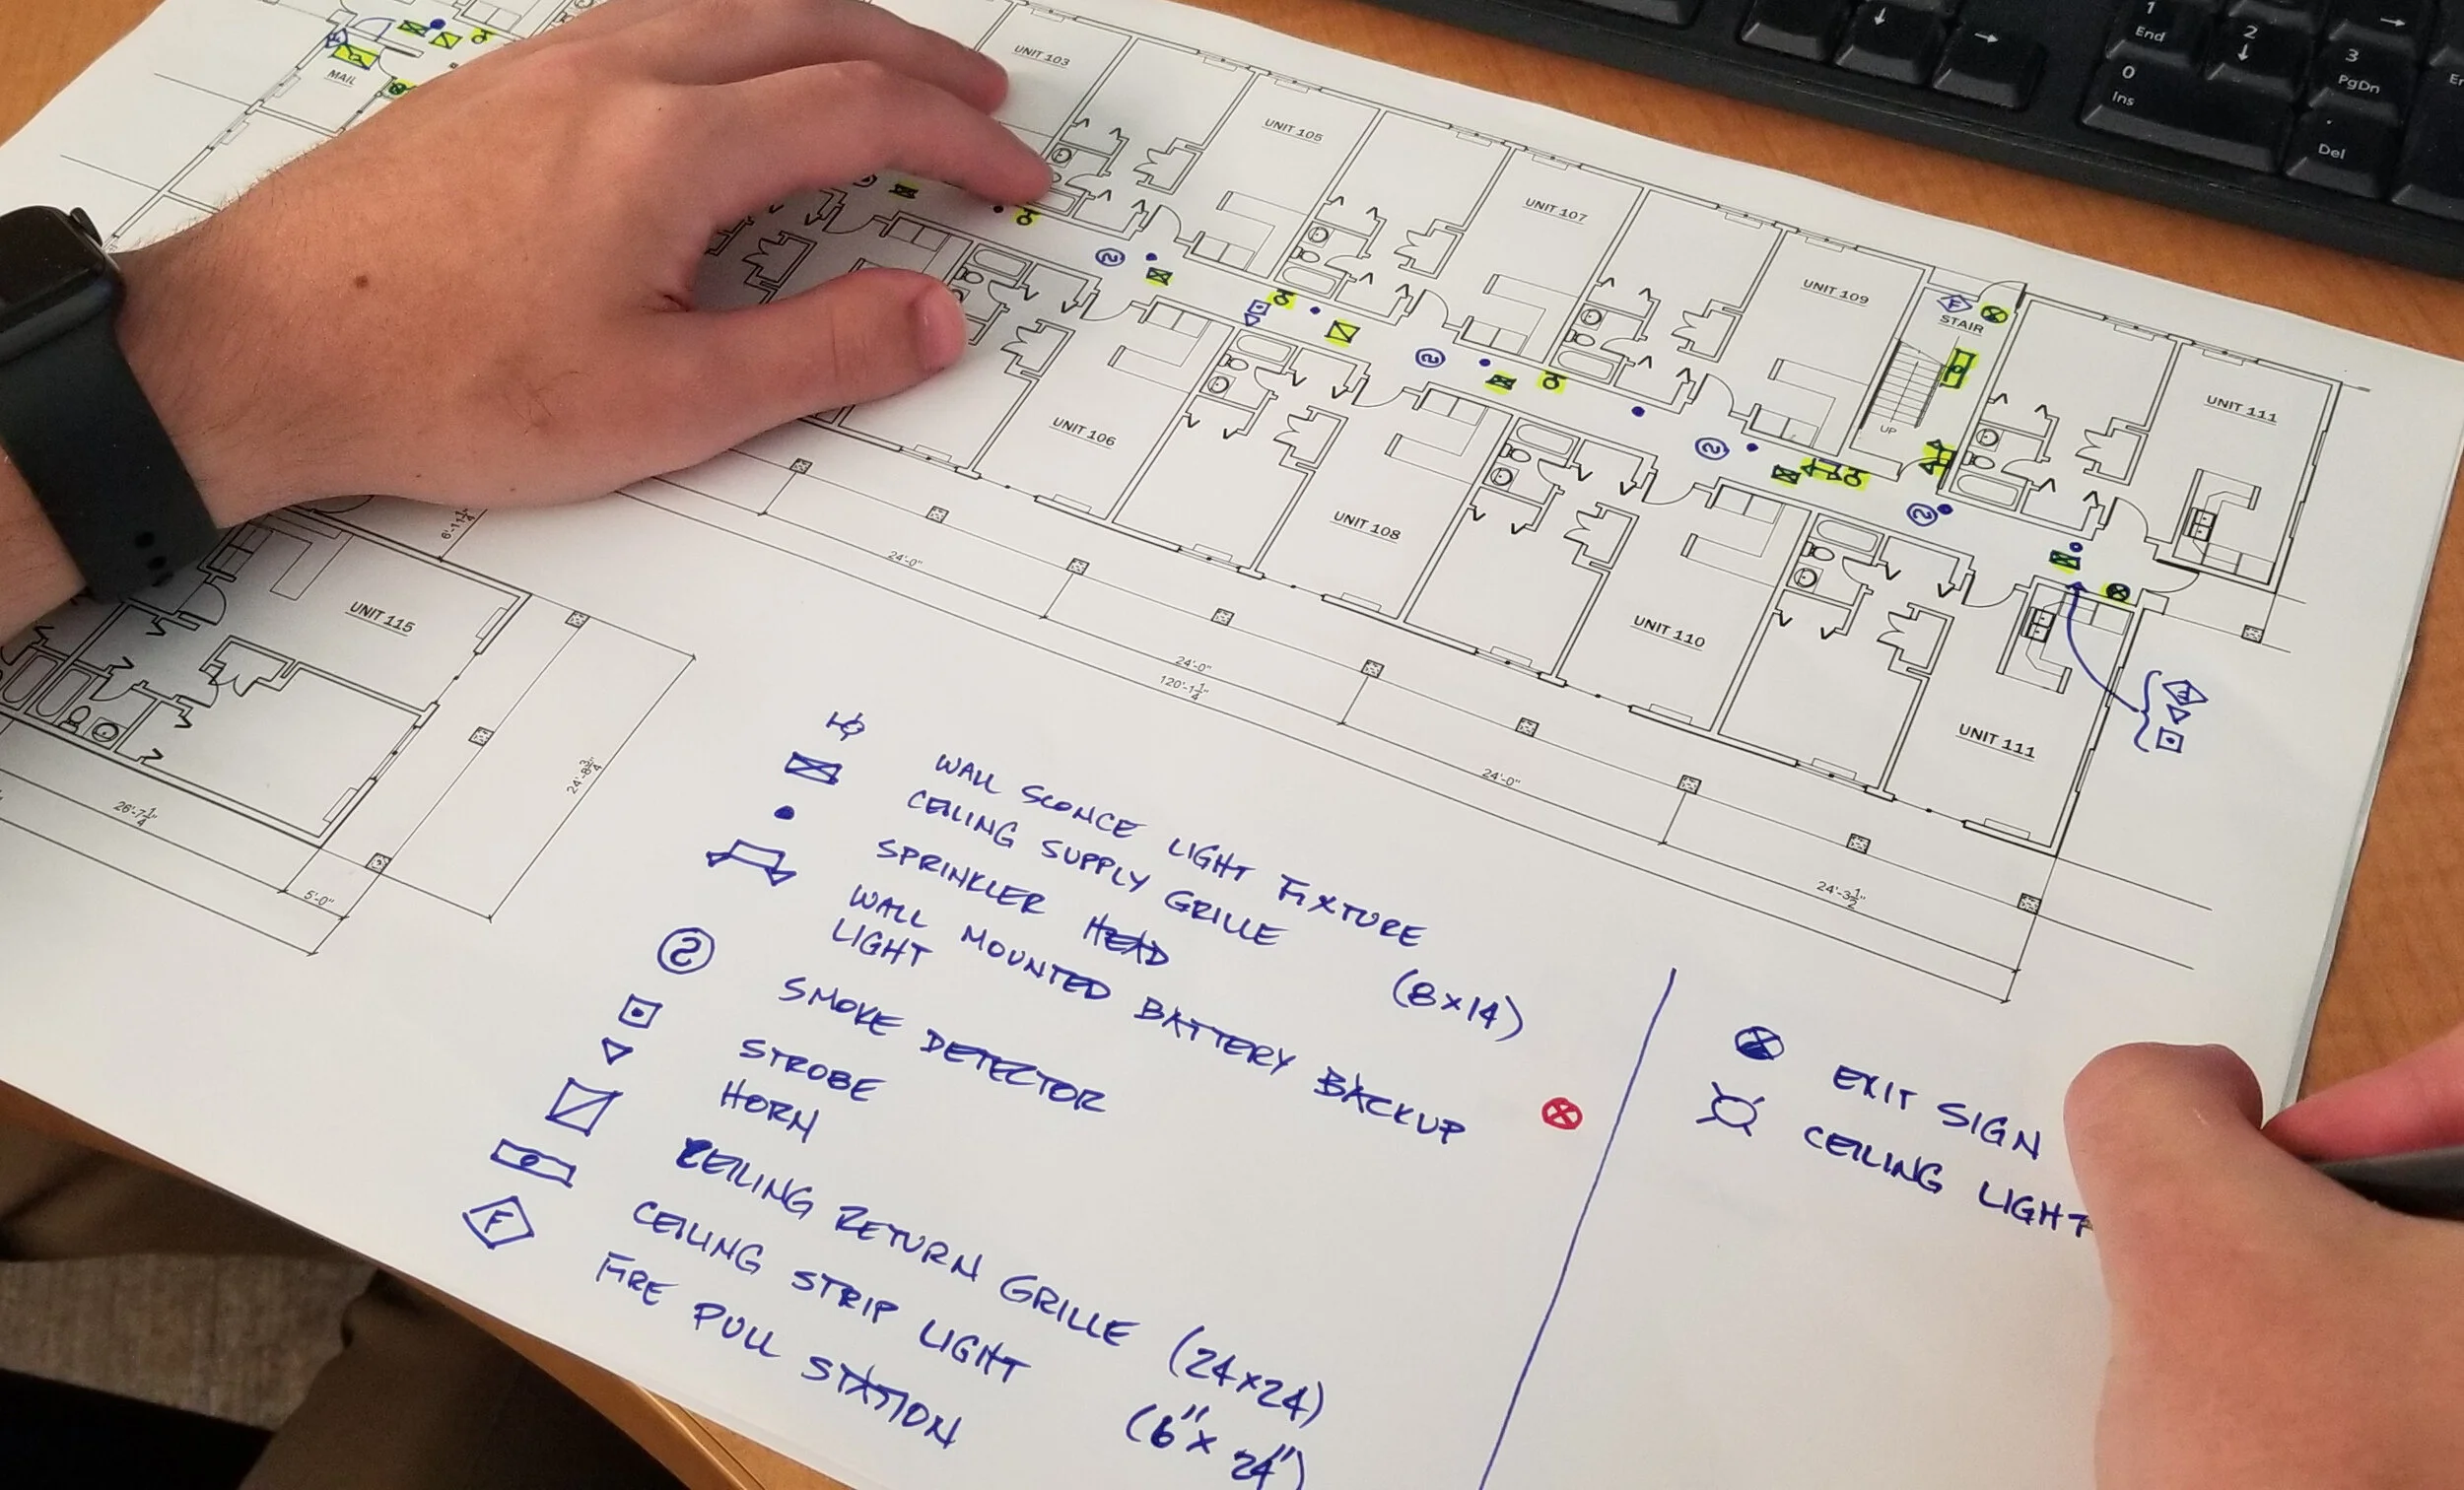 MAIL
UNIT 103
UNIT 105
UNIT 107
UNIT 109
STAIR
UP
F
UNIT 111
UNIT 106
UNIT 108
UNIT 110
UNIT 111
UNIT 115
6'-11 1/4"
24'-0"
24'-0"
120'-1 1/4"
24'-0"
24'-3 1/2"
24'-8 3/4"
26'-7 1/4"
5'-0"
WALL SCONCE LIGHT FIXTURE
CEILING SUPPLY GRILLE (8x14)
SPRINKLER HEAD
WALL MOUNTED BATTERY BACKUP
LIGHT
S SMOKE DETECTOR
STROBE
HORN
CEILING RETURN GRILLE (24x24)
CEILING STRIP LIGHT (6"x 24")
F FIRE PULL STATION
EXIT SIGN
CEILING LIGHT
1
End
2
3
PgDn
0
Ins
.
Del